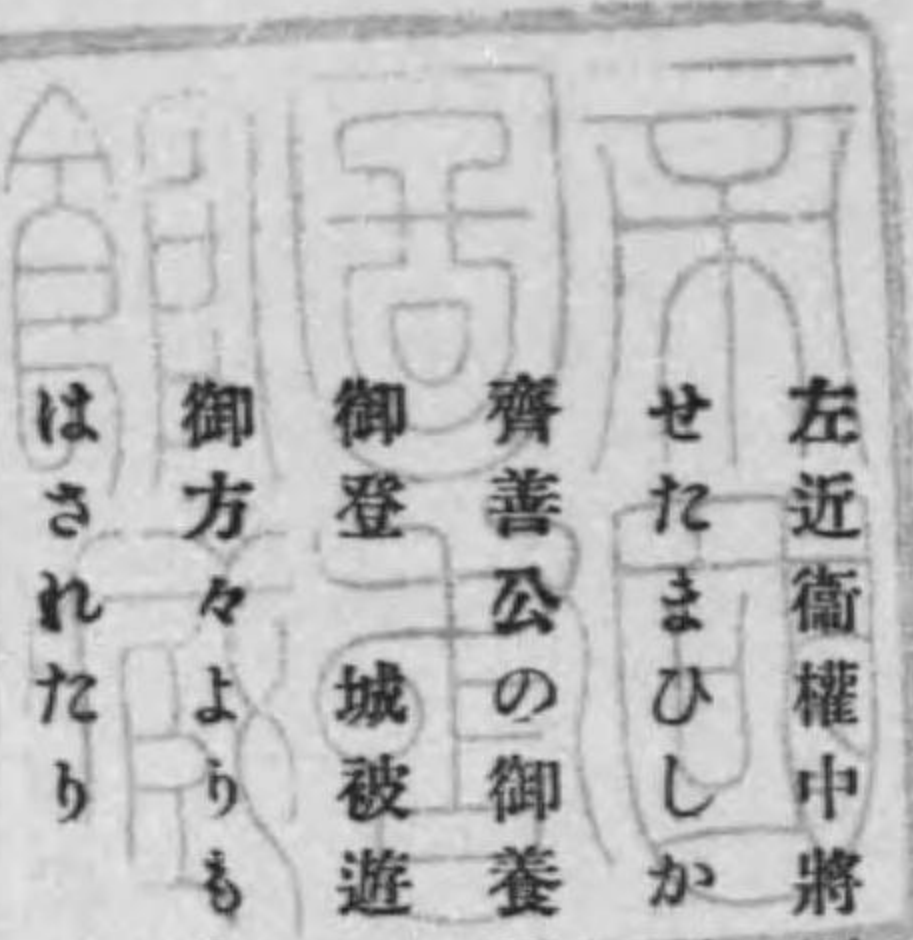 左近衞權中將
せたまひしか
齊善公の御養
御登 城被遊
御方々よりも
はされたり